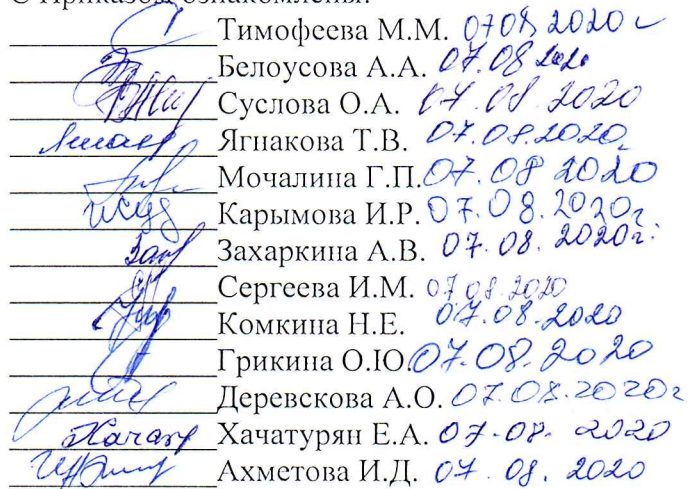 С Приказом ознакомлены:
Тимофеева М.М. 07 08 2020 г
Белоусова А.А. 07.08 2020
Суслова О.А. 07.08 2020
Ягнакова Т.В. 07.08.2020г
Мочалина Г.П. 07.08 2020
Карымова И.Р. 07.08.2020г
Захаркина А.В. 07.08.2020г.
Сергеева И.М. 07.08.2020
Комкина Н.Е. 07.08.2020
Грикина О.Ю. 07.08.2020
Деревскова А.О. 07.08.2020г
Хачатурян Е.А. 07.08. 2020
Ахметова И.Д. 07.08. 2020